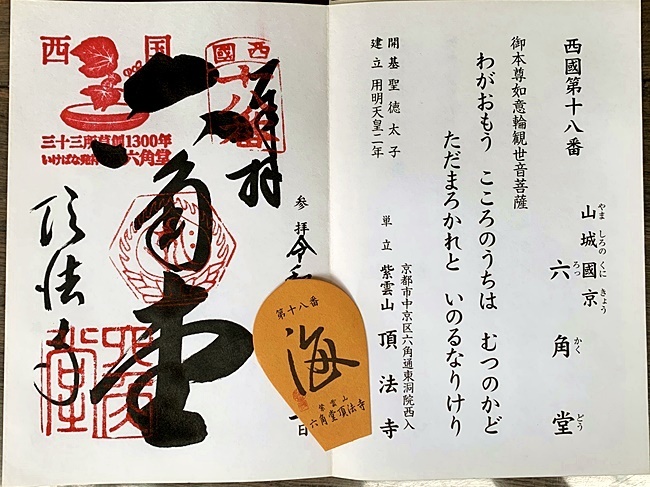 西國第十八番
山城國京 六角堂
やましろのくにきょう ろっかくどう
御本尊如意輪観世音菩薩
わがおもう こころのうちは むつのかど
ただまろかれと いのるなりけり
開基 聖徳太子
建立 用明天皇二年
京都市中京区六角通東洞院西入
単立 紫雲山 頂法寺
奉拝
参拝 令三
一日
西國
十八番
六角堂
西国
三十三所草創1300年
いけばな発 六角堂
頂法寺
六角堂
第十八番
海
紫雲山
六角堂頂法寺